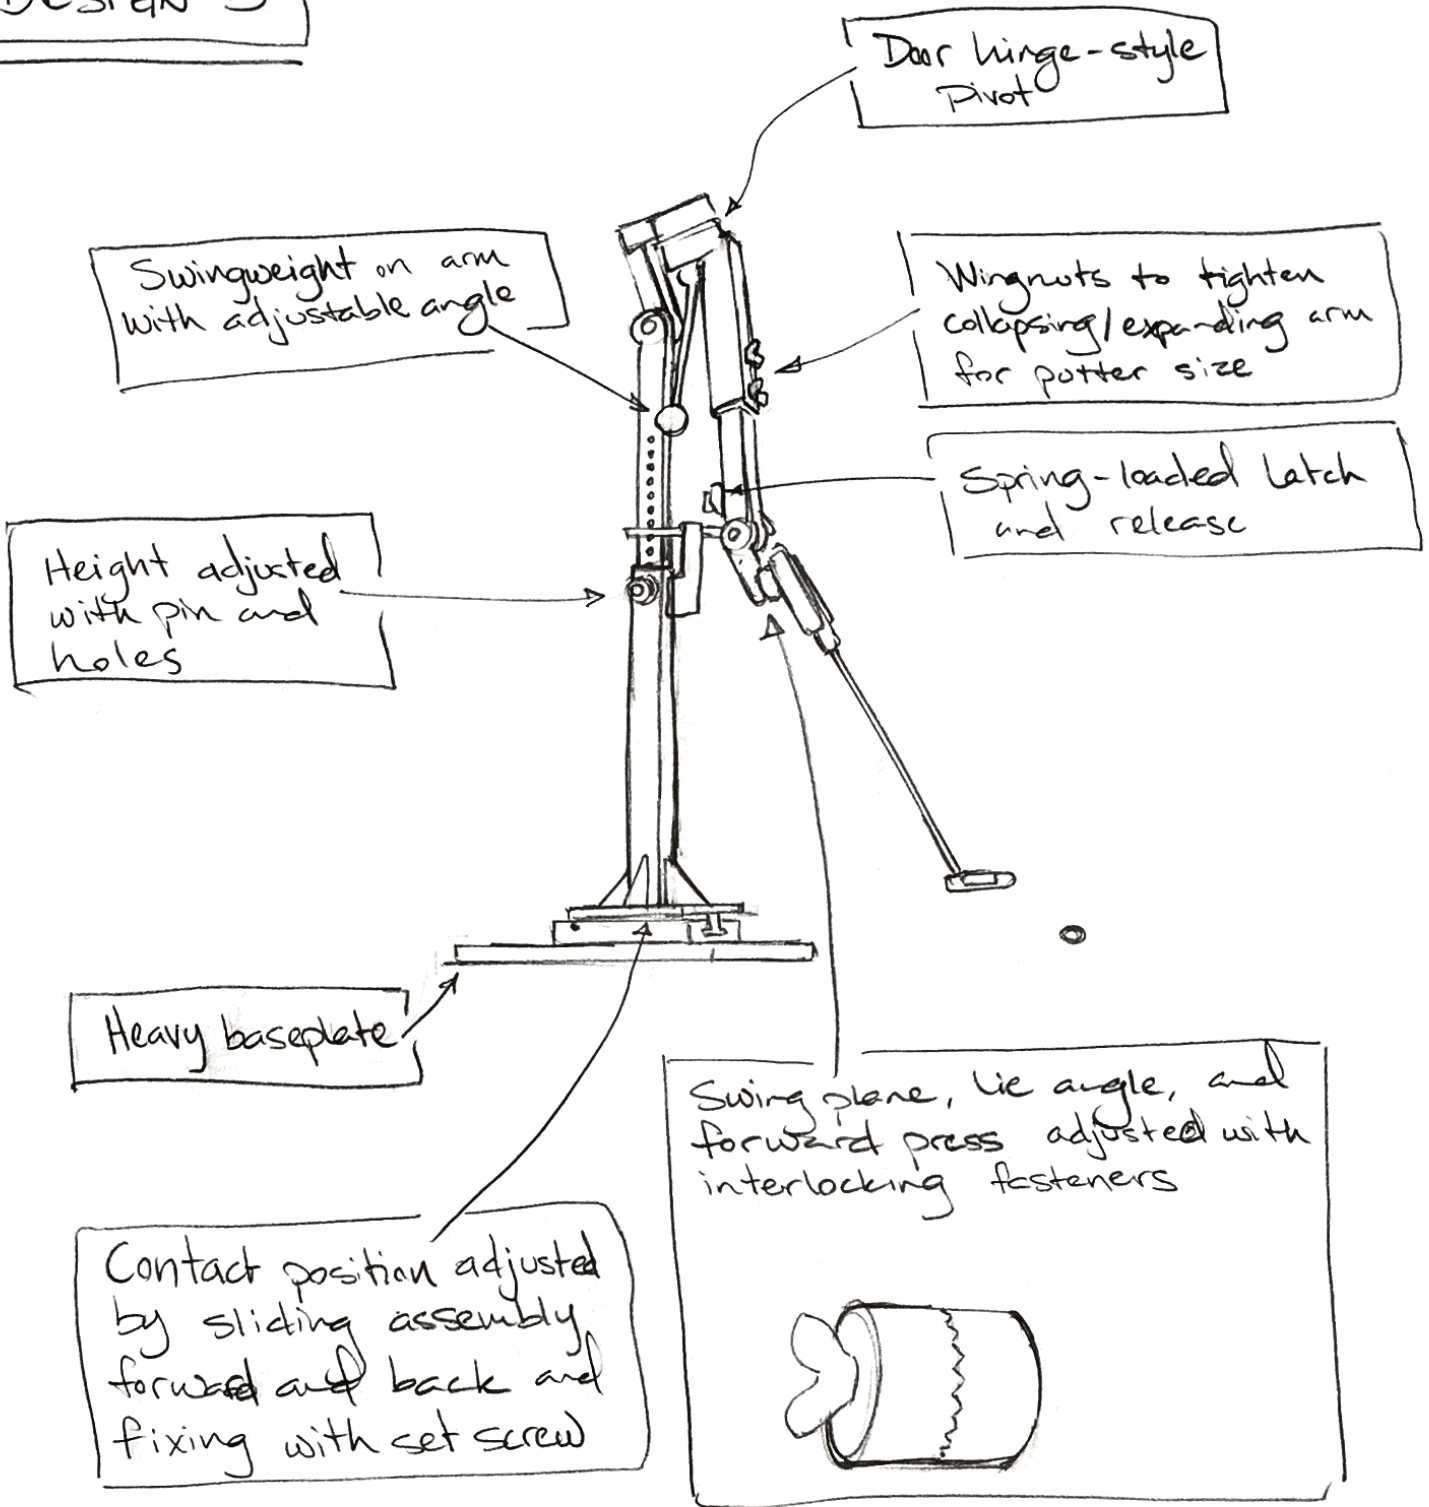 DESIGN 3
Door hinge-style
pivot
Swingweight on arm
with adjustable angle
Wingnuts to tighten
collapsing/expanding arm
for putter size
Spring-loaded latch
and release
Height adjusted
with pin and
holes
Heavy baseplate
Swing plane, lie angle, and
forward press adjusted with
interlocking fasteners
Contact position adjusted
by sliding assembly
forward and back and
fixing with set screw